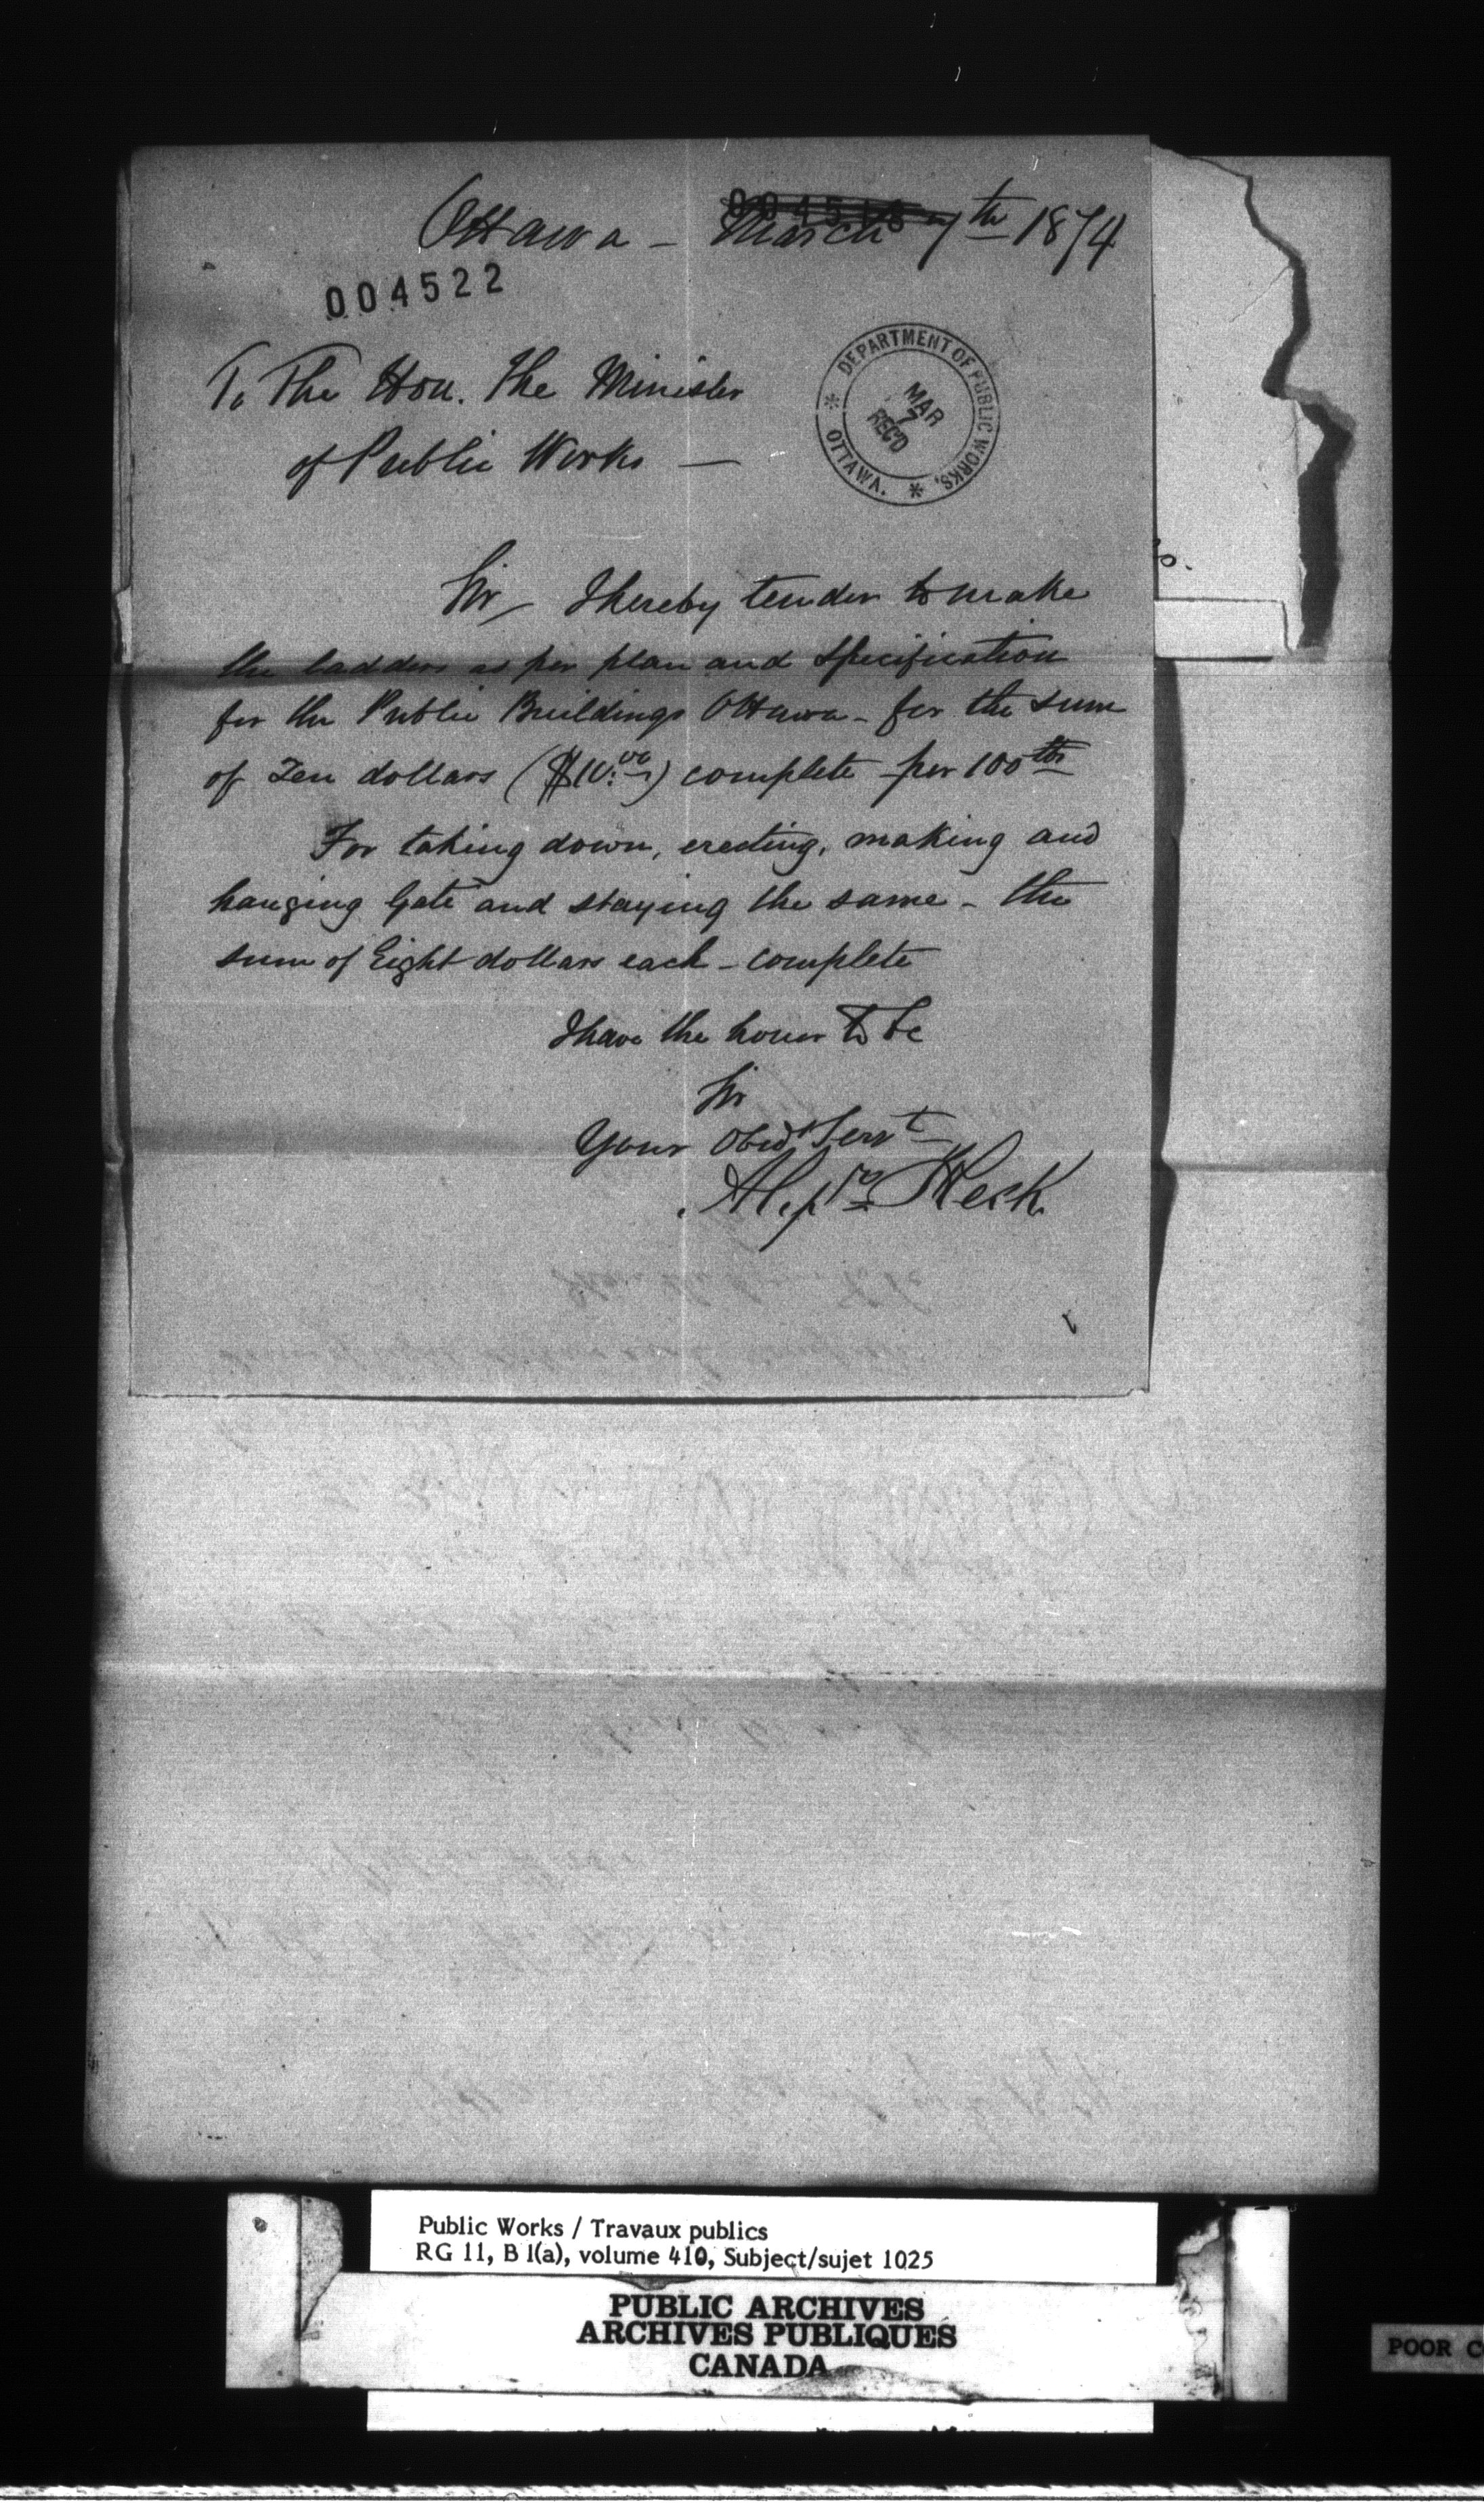 004518
Ottawa - March 7th 1874
004522
DEPARTMENT OF PUBLIC WORKS,
OTTAWA.
MAR
7
REC'D
To The Hon. The Minister
of Public Works —
Sir I hereby tender to make
the ladders as per plan and Specification
for the Public Buildings Ottawa - for the sum
of Ten dollars ($10.00) complete per 100 lbs
For taking down, erecting, making and
hanging Gate and staying the same - the
sum of Eight dollars each - complete
I have the honor to be
Sir
Your Obedt Servt
Public Works / Travaux publics
RG 11, B 1(a), volume 410, Subject/sujet 1025
PUBLIC ARCHIVES
ARCHIVES PUBLIQUES
CANADA
POOR C